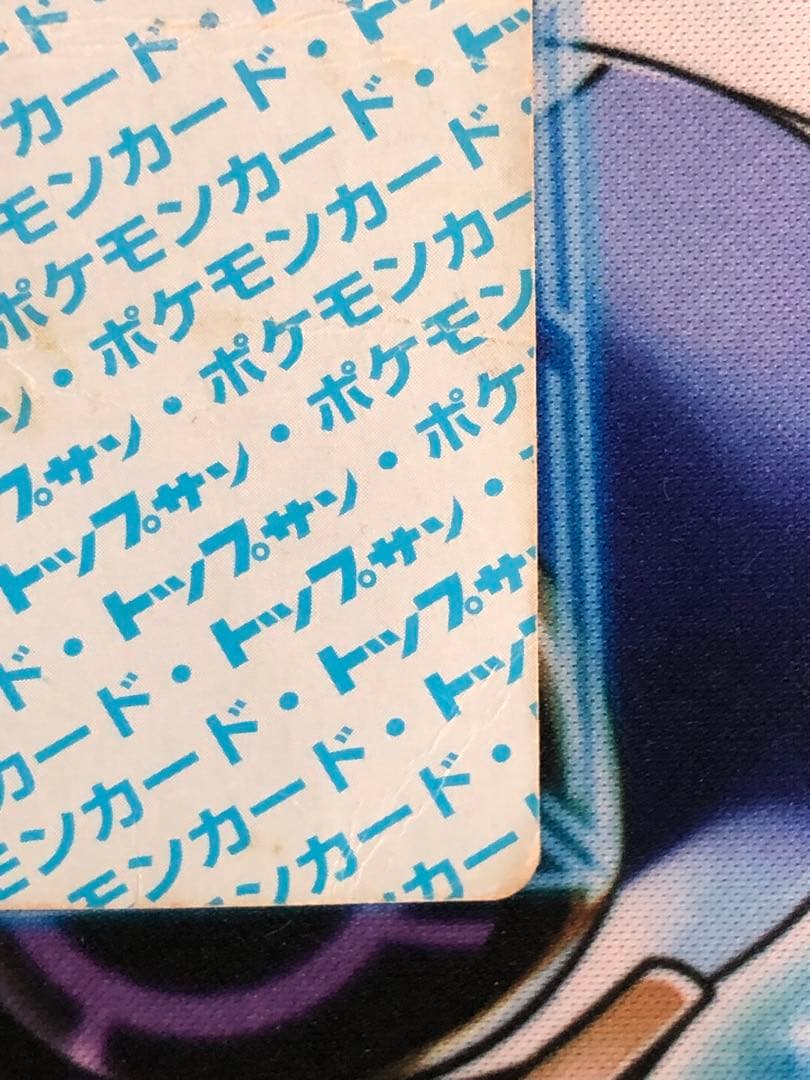 ド
カード・
モンカード・ト
ポケモンカード・トッ
ン・ポケモンカード・
プサン・ポケモンカー
トップサン・ポケモン
ド・トップサン・ポケ
カード・トップサン・
モンカード・トップサ
モンカード・トップ
ンカード・
カー